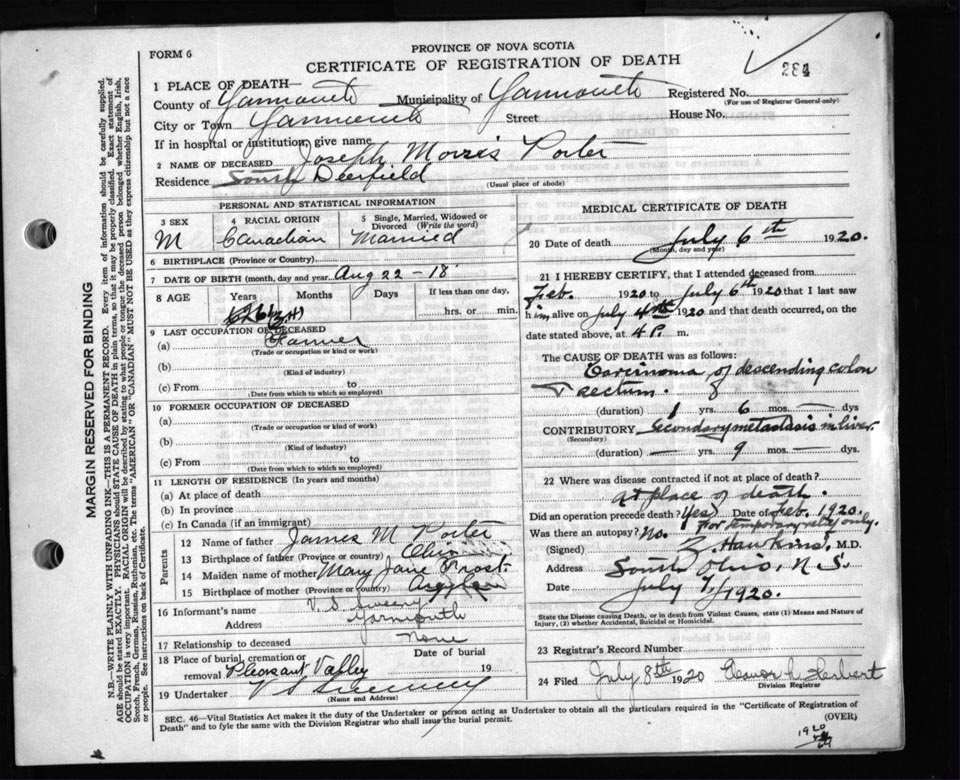 PROVINCE OF NOVA SCOTIA
FORM 6
CERTIFICATE OF REGISTRATION OF DEATH
284
1 PLACE OF DEATH—
County of Yarmouth Municipality of Yarmouth Registered No.
(For use of Registrar General only)
City or Town Yarmouth Street House No.
If in hospital or institution, give name
2 NAME OF DECEASED Joseph Morris Porter
Residence South Deerfield
(Usual place of abode)
PERSONAL AND STATISTICAL INFORMATION
3 SEX 4 RACIAL ORIGIN 5 Single, Married, Widowed or Divorced (Write the word)
M Canadian Married
6 BIRTHPLACE (Province or Country)
7 DATE OF BIRTH (month, day and year) Aug 22 - 18
8 AGE Years Months Days If less than one day,
hrs. or min.
9 LAST OCCUPATION OF DECEASED
(a) Farmer
(Trade or occupation or kind or work)
(b)
(Kind of industry)
(c) From to
(Date from which to which so employed)
10 FORMER OCCUPATION OF DECEASED
(a)
(Trade or occupation or kind or work)
(b)
(Kind of industry)
(c) From to
(Date from which to which so employed)
11 LENGTH OF RESIDENCE (In years and months)
(a) At place of death
(b) In province
(c) In Canada (if an immigrant)
Parents
12 Name of father James M Porter
13 Birthplace of father (Province or country) Ohio
14 Maiden name of mother Mary Jane Frost
15 Birthplace of mother (Province or country) Argyle
16 Informant's name V. S. Sweeny
Address Yarmouth
17 Relationship to deceased None
18 Place of burial, cremation or removal Pleasant Valley Date of burial 19
19 Undertaker V S Sweeney
(Name and Address)
MEDICAL CERTIFICATE OF DEATH
20 Date of death July 6th 1920.
(Month, day and year)
21 I HEREBY CERTIFY, that I attended deceased from
Feb. 1920 to July 6th 1920 that I last saw
him alive on July 4th 1920 and that death occurred, on
date stated above, at 4 P. m.
The CAUSE OF DEATH was as follows:
Carcinoma of descending colon
rectum.
(duration) 1 yrs. 6 mos. — dys
CONTRIBUTORY Secondary metastasis in liver
(Secondary)
(duration) — yrs. 9 mos. — dys.
22 Where was disease contracted if not at place of death?
at place of death.
Did an operation precede death? Yes Date of Feb. 1920.
For temporary relief only.
Was there an autopsy? No.
(Signed) Z. Hawkins, M.D.
Address South Ohio, N.S.
Date July 7, 1920.
State the Disease causing Death, or in death from Violent Causes, state (1) Means and Nature of
Injury, (2) whether Accidental, Suicidal or Homicidal.
23 Registrar's Record Number
24 Filed July 8th 1920 Eleanor L Herbert
Division Registrar
SEC. 46—Vital Statistics Act makes it the duty of the Undertaker or person acting as Undertaker to obtain all the particulars required in the "Certificate of Registration of
Death" and to fyle the same with the Division Registrar who shall issue the burial permit.
(OVER)
1920
MARGIN RESERVED FOR BINDING
N.B.—WRITE PLAINLY WITH UNFADING INK—THIS IS A PERMANENT RECORD. Every item of information should be carefully supplied.
AGE should be stated EXACTLY. PHYSICIANS should STATE CAUSE OF DEATH in plain terms, so that it may be properly classified. Exact statement of
OCCUPATION is very important. RACIAL ORIGIN will be described by stating to what people or tongue the deceased person belonged whether English, Irish,
Scotch, French, German, Russian, Ruthenian, etc. The terms "AMERICAN" OR "CANADIAN" MUST NOT BE USED as they express citizenship but not a race
or people. See instructions on back of Certificate.